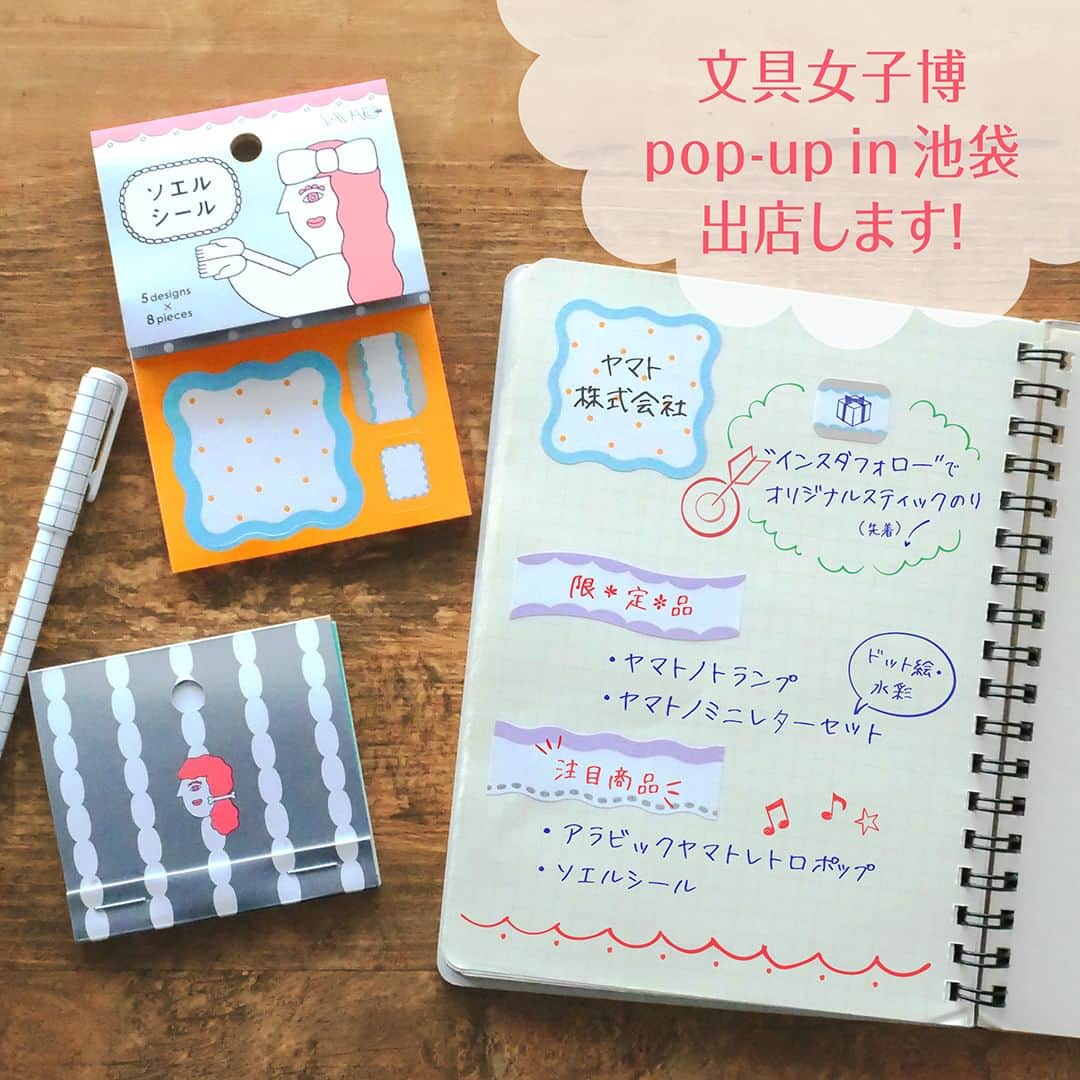 文具女子博
pop-up in 池袋
出店します!
ソエル
シール
5 designs
×
8 pieces
ヤマト
株式会社
"インスタフォロー"で
オリジナルスティックのり
(先着)!
限*定*品
・ヤマトノトランプ
・ヤマトノミニレターセット
ドット絵・
水彩
注目商品
・アラビックヤマトレトロポップ
・ソエルシール